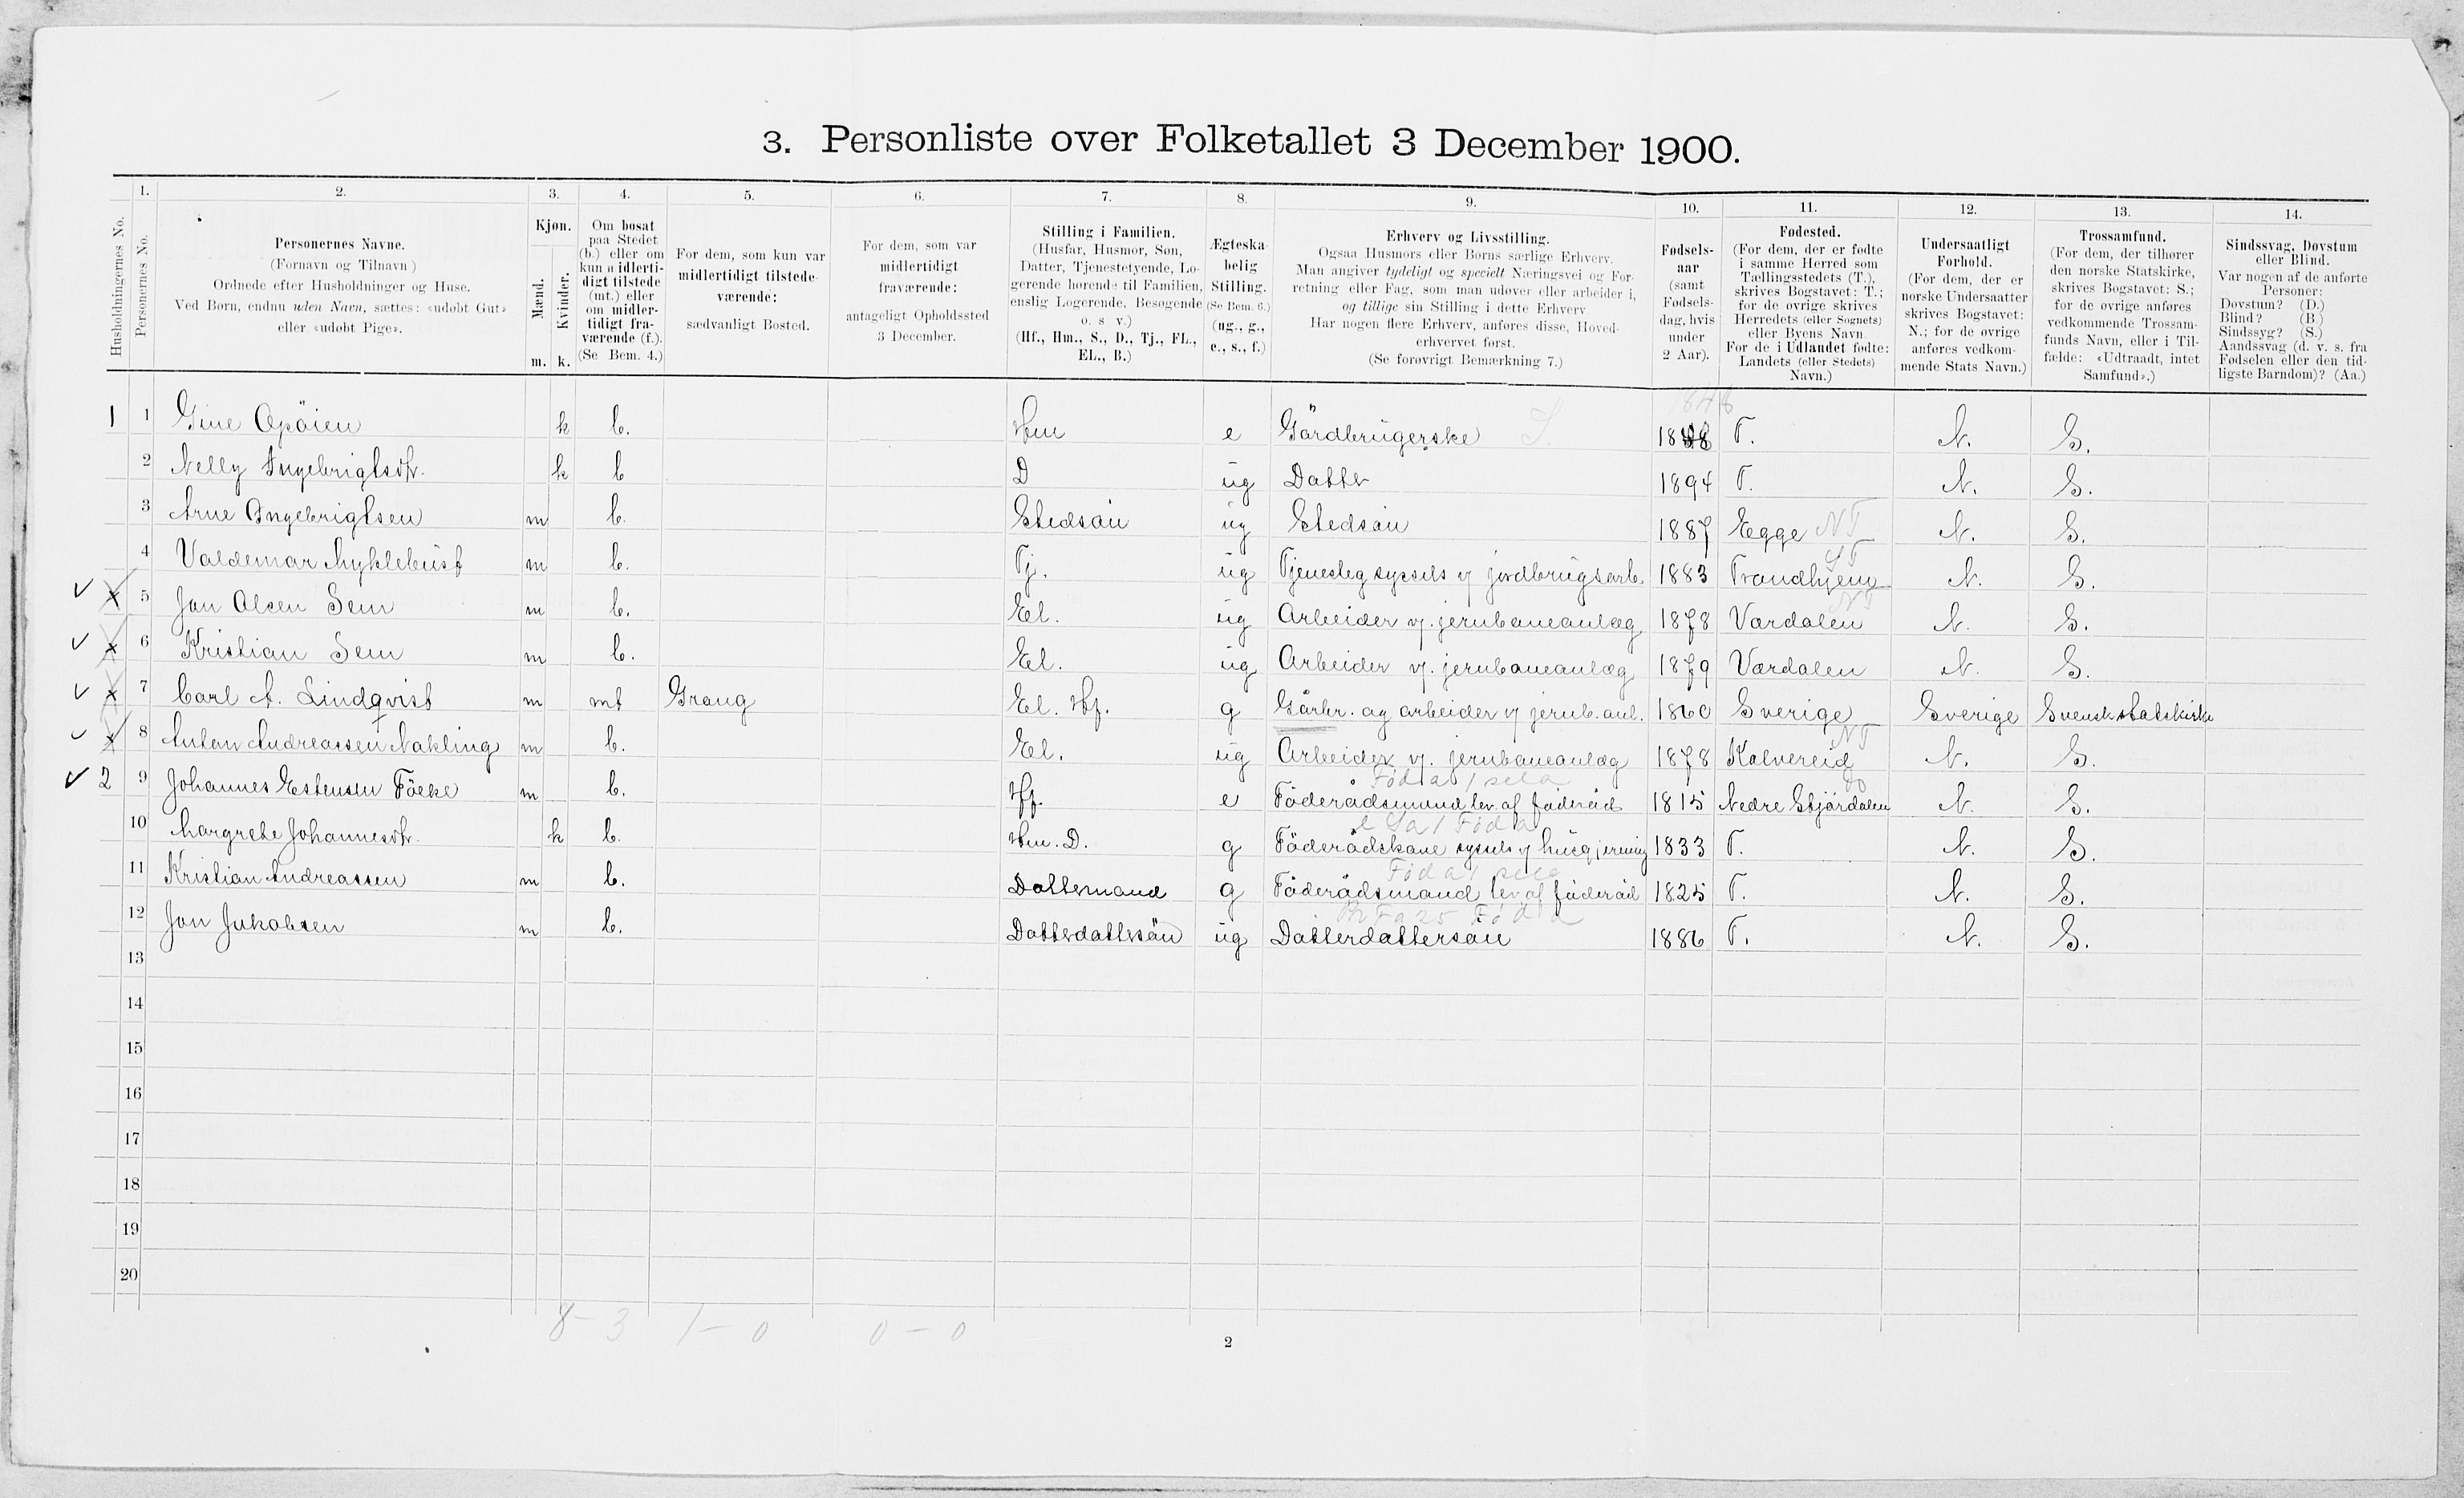 3. Personliste over Folketallet 3 December 1900.
1. 2. 3. 4. 5. 6. 7. 8. 9. 10. 11. 12. 13. 14.
Husholdningernes No.
Personernes No.
Personernes Navne.
(Fornavn og Tilnavn)
Ordnede efter Husholdninger og Huse.
Ved Børn, endnu uden Navn, sættes: «udøbt Gut»
eller «udøbt Pige».
Kjøn.
Mænd.
Kvinder.
m. k.
Om bosat
paa Stedet
(b.) eller om
kun midlerti-
digt tilstede
(mt.) eller
om midler-
tidigt fra-
værende (f.).
(Se Bem. 4.)
For dem, som kun var
midlertidigt tilstede-
værende:
sædvanligt Bosted.
For dem, som var
midlertidigt
fraværende:
antageligt Opholdssted
3 December.
Stilling i Familien.
(Husfar, Husmor, Søn,
Datter, Tjenestetyende, Lo-
gerende hørende til Familien,
enslig Logerende, Besøgende
o. s v.)
(Hf., Hm., S., D., Tj., FL.,
EL., B.)
Ægteska-
belig
Stilling.
(Se Bem. 6.)
(ug., g.,
e., s., f.)
Erhverv og Livsstilling.
Ogsaa Husmors eller Børns særlige Erhverv.
Man angiver tydeligt og specielt Næringsvei og For-
retning eller Fag, som man udøver eller arbeider i,
og tillige sin Stilling i dette Erhverv
Har nogen flere Erhverv, anføres disse, Hoved-
erhvervet først.
(Se forøvrigt Bemærkning 7.)
Fødsels-
aar
(samt
Fødsels-
dag, hvis
under
2 Aar).
Fødested.
(For dem, der er fødte
i samme Herred som
Tællingsstedets (T.),
skrives Bogstavet: T.;
for de øvrige skrives
Herredets (eller Sognets)
eller Byens Navn
For de i Udlandet fødte:
Landets (eller Stedets)
Navn.)
Undersaatligt
Forhold.
(For dem, der er
norske Undersaatter
skrives Bogstavet:
N.; for de øvrige
anføres vedkom-
mende Stats Navn.)
Trossamfund.
(For dem, der tilhører
den norske Statskirke,
skrives Bogstavet: S.;
for de øvrige anføres
vedkommende Trossam-
funds Navn, eller i Til-
fælde: «Udtraadt, intet
Samfund».)
Sindssvag, Døvstum
eller Blind.
Var nogen af de anførte
Personer:
Døvstum? (D.)
Blind? (B.)
Sindssyg? (S.)
Aandssvag (d. v. s. fra
Fødselen eller den tid-
ligste Barndom)? (Aa.)
1848
1 1 Gine Opöien k b. Hm e Gårdbrugerske S. 1848 T. N. S.
2 Nelly Ingebrigtsdtr. k b D ug Datter 1894 T. N. S.
3 Arne Ingebrigtsen m b. Stedsön ug Stedsön 1887 Egge NT N. S.
4 Valdemar Myklebust m b. Tj. ug 1883 Trondhjem ST N. S.
5 Jon Olsen Sem m b. El. ug Arbeider v. jernbaneanlæg 1878 Værdalen NT N. S.
6 Kristian Sem m b. El. ug Arbeider v. jernbaneanlæg 1879 Værdalen N. S.
7 Carl A. Lindqvist m mt Grong El. Hf. g Gårbr. og arbeider v jernb.anl. 1860 Sverige Sverige Svensk statskirke
8 Anton Andreassen Nakling m b. El. ug Arbeider v. jernbaneanlæg 1878 Kolvereid NT N. S.
2 9 Johannes Estensen m b. Hf. e Föderådsmand lev. af föderåd 1815 Nedre Stjördalen do N. S.
10 Margrete Johannesdtr. k b. Hm. D. g Föderådskone syssels v husgjerning 1833 T. N. S.
11 Kristian Andreassen m b. Dattermand g Föderådsmand lev. af föderåd 1825 T. N. S.
12 Jon Jakobsen m b. Datterdattersön ug Datterdattersön 1886 T. N. S.
13
14
15
16
17
18
19
20
8 – 3 1 – 0 0 – 0
2